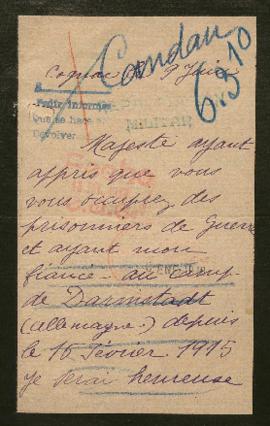 Candau
6.510
Cognac le 9 Juin
Para informe
Que se hace
Devolver
MILITAR
Majesté ayant
appris que vous
vous occupez des
prisonniers de Guerre
et ayant mon
fiancé au camp
de Darmstadt
(Allemagne) depuis
le 16 février 1915
je serai heureuse